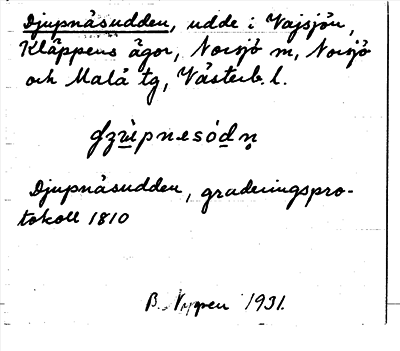 Djupnäsudden, udde i Vajsjön,
Kläppens ägor, Norsjö sn, Norsjö
och Malå tg, Västerb. l.
Djupnäsudden, graderingspro-
tokoll 1810
B. 1931.